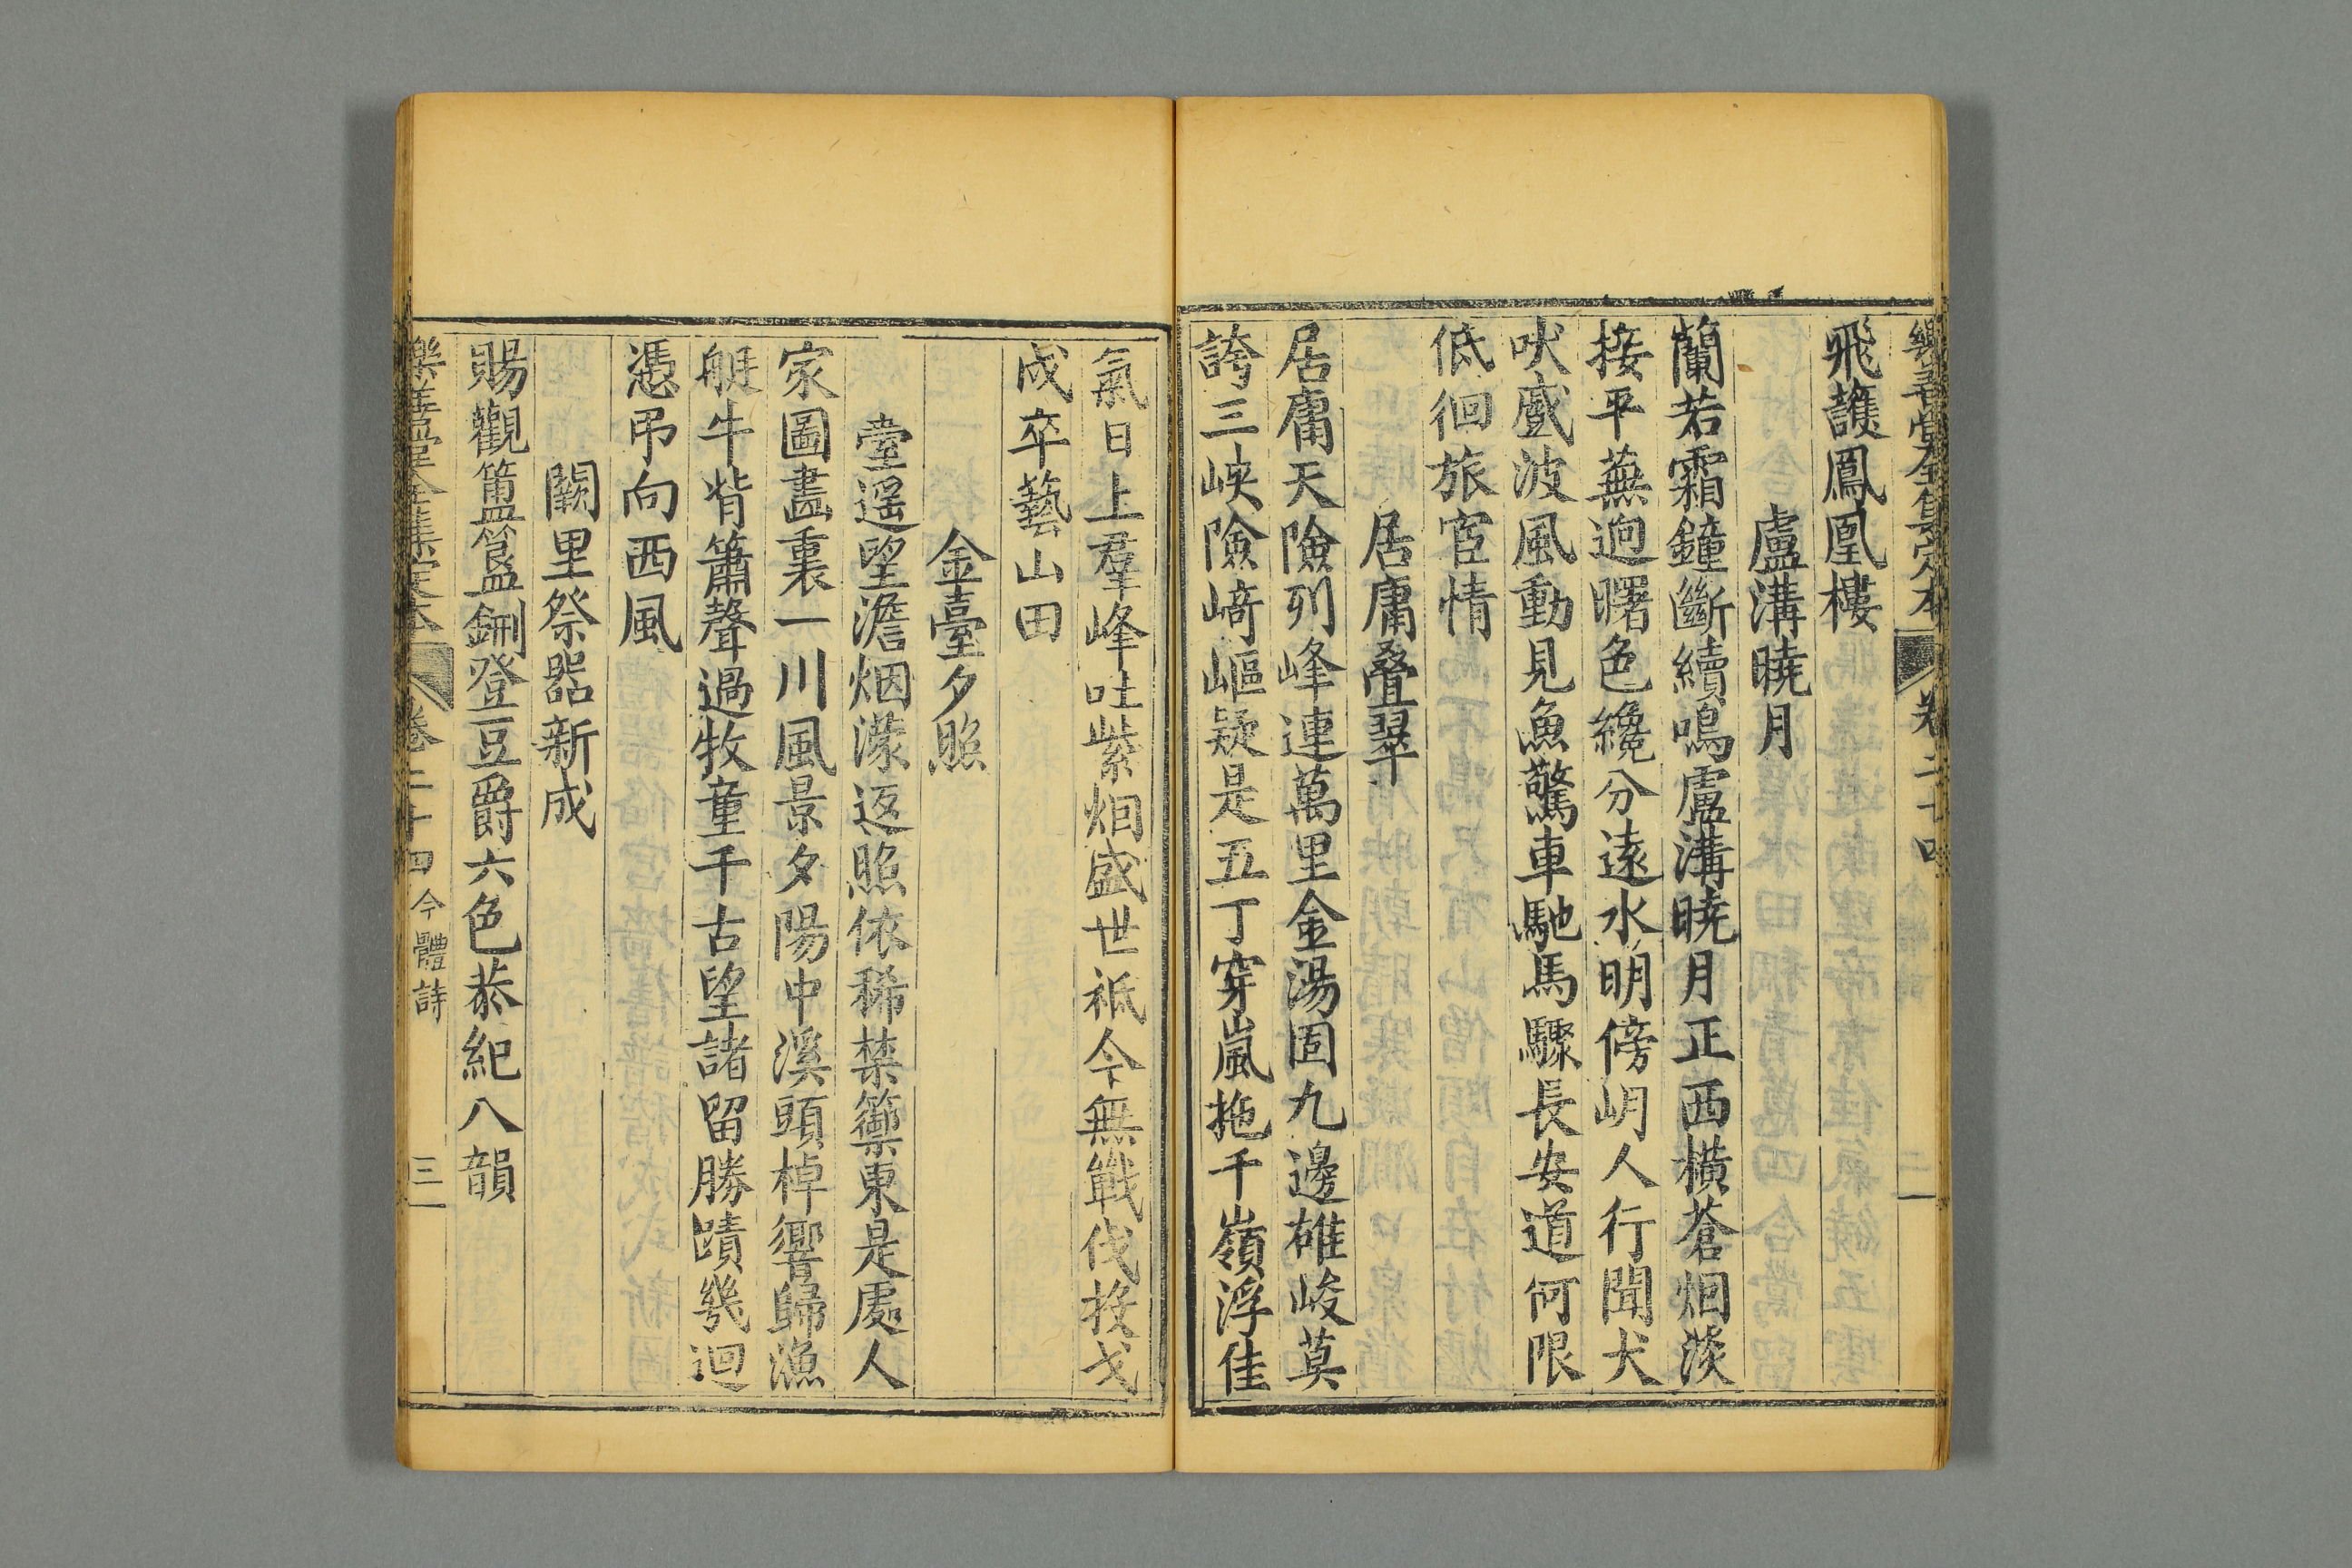 樂善堂全集定本 卷二十四
飛護鳳凰樓
盧溝曉月
蘭若霜鐘斷續鳴盧溝曉月正西橫蒼烟淡
接平蕪逈曙色纔分遠水明傍岄人行聞犬
吠戲波風動見魚驚車馳馬驟長安道何限
低徊旅宦情
居庸疊翠
居庸天險列峰連萬里金湯固九邊雄峻莫
誇三峽險﨑嶇疑是五丁穿嵐拖千嶺浮佳
氣日上羣峰吐紫烟盛世祇今無戰伐投戈
戍卒藝山田
金臺夕照
臺遥望澹烟濛返照依稀禁籞東是處人
家圖畵裏一川風景夕陽中溪頭棹響歸漁
艇牛背簫聲過牧童千古望諸留勝蹟幾迴
憑弔向西風
闕里祭器新成
賜觀簠簋鉶登豆爵六色恭紀八韻
樂善堂全集定本 卷二十四 今體詩 三